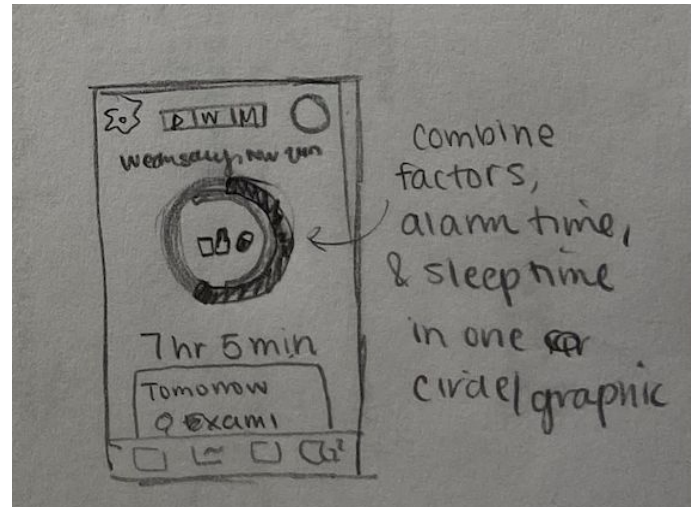 D W M
Wednesday, Nov
7 hr 5 min
Tomorrow
exam!
combine
factors,
alarm time,
& sleep time
in one
circle/graphic